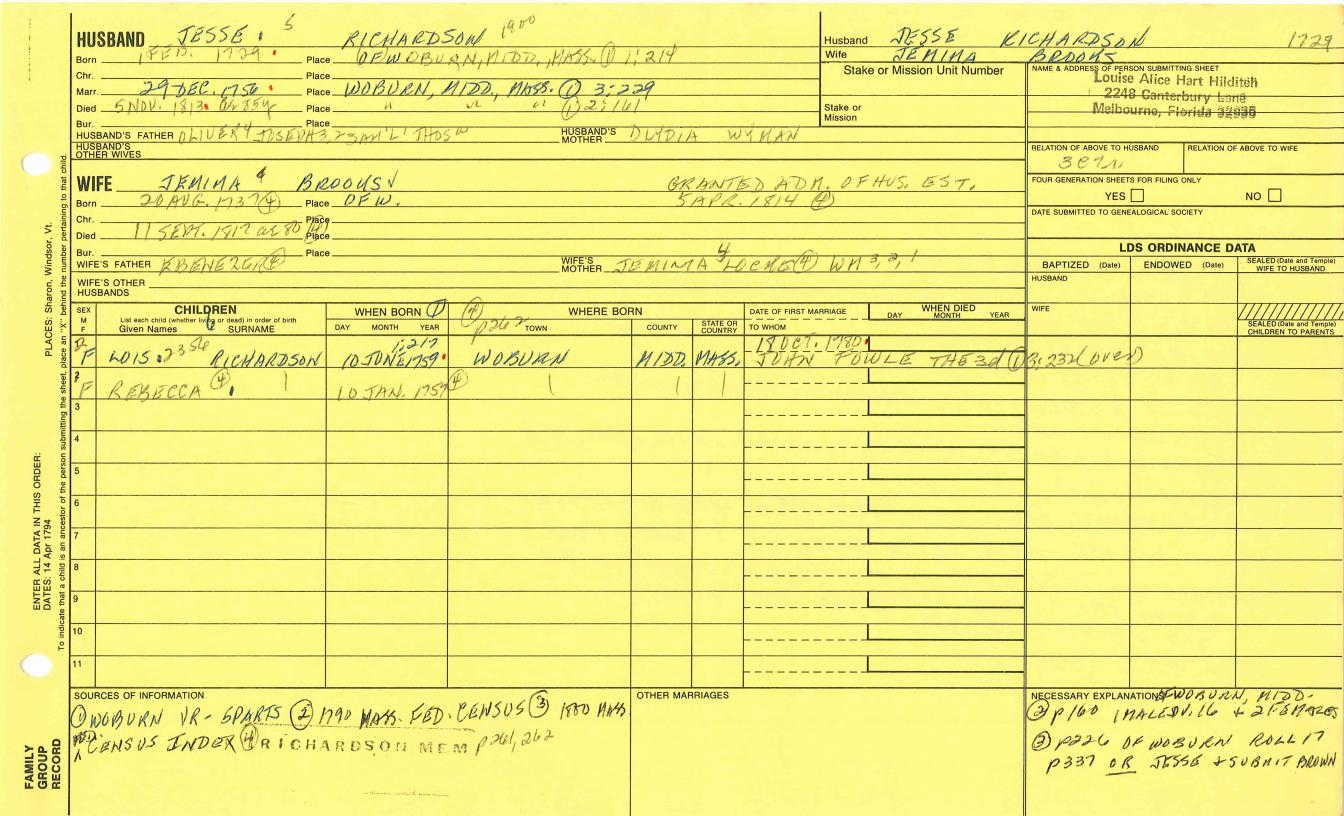 HUSBAND JESSE 5 RICHARDSON 1900
Born FEB. 1729 Place OF WOBURN, MIDD., MASS. ① 1:214
Chr. Place
Marr. 29 DEC. 1756 Place WOBURN, MIDD, MASS. ① 3:229
Died 5 NOV. 1813 ae 85y Place " " " ① 2:161
Bur. Place
HUSBAND'S FATHER OLIVER4 JOSEPH3, 2 SAM'L' THOS HUSBAND'S MOTHER LYDIA WYMAN
HUSBAND'S OTHER WIVES
WIFE JEMIMA 4 BROOKS √ GRANTED ADM. OF HUS. EST.
Born 20 AUG. 1737 ④ Place OF W. 5 APR. 1814 ④
Chr. Place
Died 11 SEPT. 1817 ae 80 ④ Place
Bur. Place
WIFE'S FATHER EBENEZER ④ WIFE'S MOTHER JEMIMA 4 LOCKE ④ WM 3, 2, 1
WIFE'S OTHER HUSBANDS
Husband JESSE RICHARDSON 1729
Wife JEMIMA BROOKS
Stake or Mission Unit Number
Stake or Mission
NAME & ADDRESS OF PERSON SUBMITTING SHEET
Louise Alice Hart Hilditch
2248 Canterbury Lane
Melbourne, Florida 32935
RELATION OF ABOVE TO HUSBAND RELATION OF ABOVE TO WIFE
FOUR GENERATION SHEETS FOR FILING ONLY
YES NO
DATE SUBMITTED TO GENEALOGICAL SOCIETY
LDS ORDINANCE DATA
BAPTIZED (Date) ENDOWED (Date) SEALED (Date and Temple) WIFE TO HUSBAND
HUSBAND
WIFE
SEALED (Date and Temple) CHILDREN TO PARENTS
SEX M F
CHILDREN
List each child (whether living or dead) in order of birth
Given Names 6 SURNAME
WHEN BORN ①
DAY MONTH YEAR
④ p262 WHERE BORN
TOWN COUNTY STATE OR COUNTRY
DATE OF FIRST MARRIAGE
TO WHOM
WHEN DIED
DAY MONTH YEAR
1:217 18 OCT. 1780
F LOIS 2356 RICHARDSON 10 JUNE 1759 WOBURN MIDD. MASS. JOHN FOWLE THE 3d ① 3:232 (over)
F REBECCA ④ 10 JAN. 1757 ④
3
4
5
6
7
8
9
10
11
SOURCES OF INFORMATION
① WOBURN VR - 6 PARTS ② 1790 MASS. FED. CENSUS ③ 1800 MASS
FED. CENSUS INDEX ④ RICHARDSON MEM p261, 262
OTHER MARRIAGES
NECESSARY EXPLANATIONS OF WOBURN, MIDD-
② p160 1 MALE OV. 16 + 2 FEMALES
③ p226 OF WOBURN ROLL 17
p337 OR JESSE + SUBMIT BROWN
PLACES: Sharon, Windsor, Vt.
ENTER ALL DATA IN THIS ORDER:
DATES: 14 Apr 1794
To indicate that a child is an ancestor of the person submitting the sheet, place an "X" behind the number pertaining to that child
FAMILY GROUP RECORD